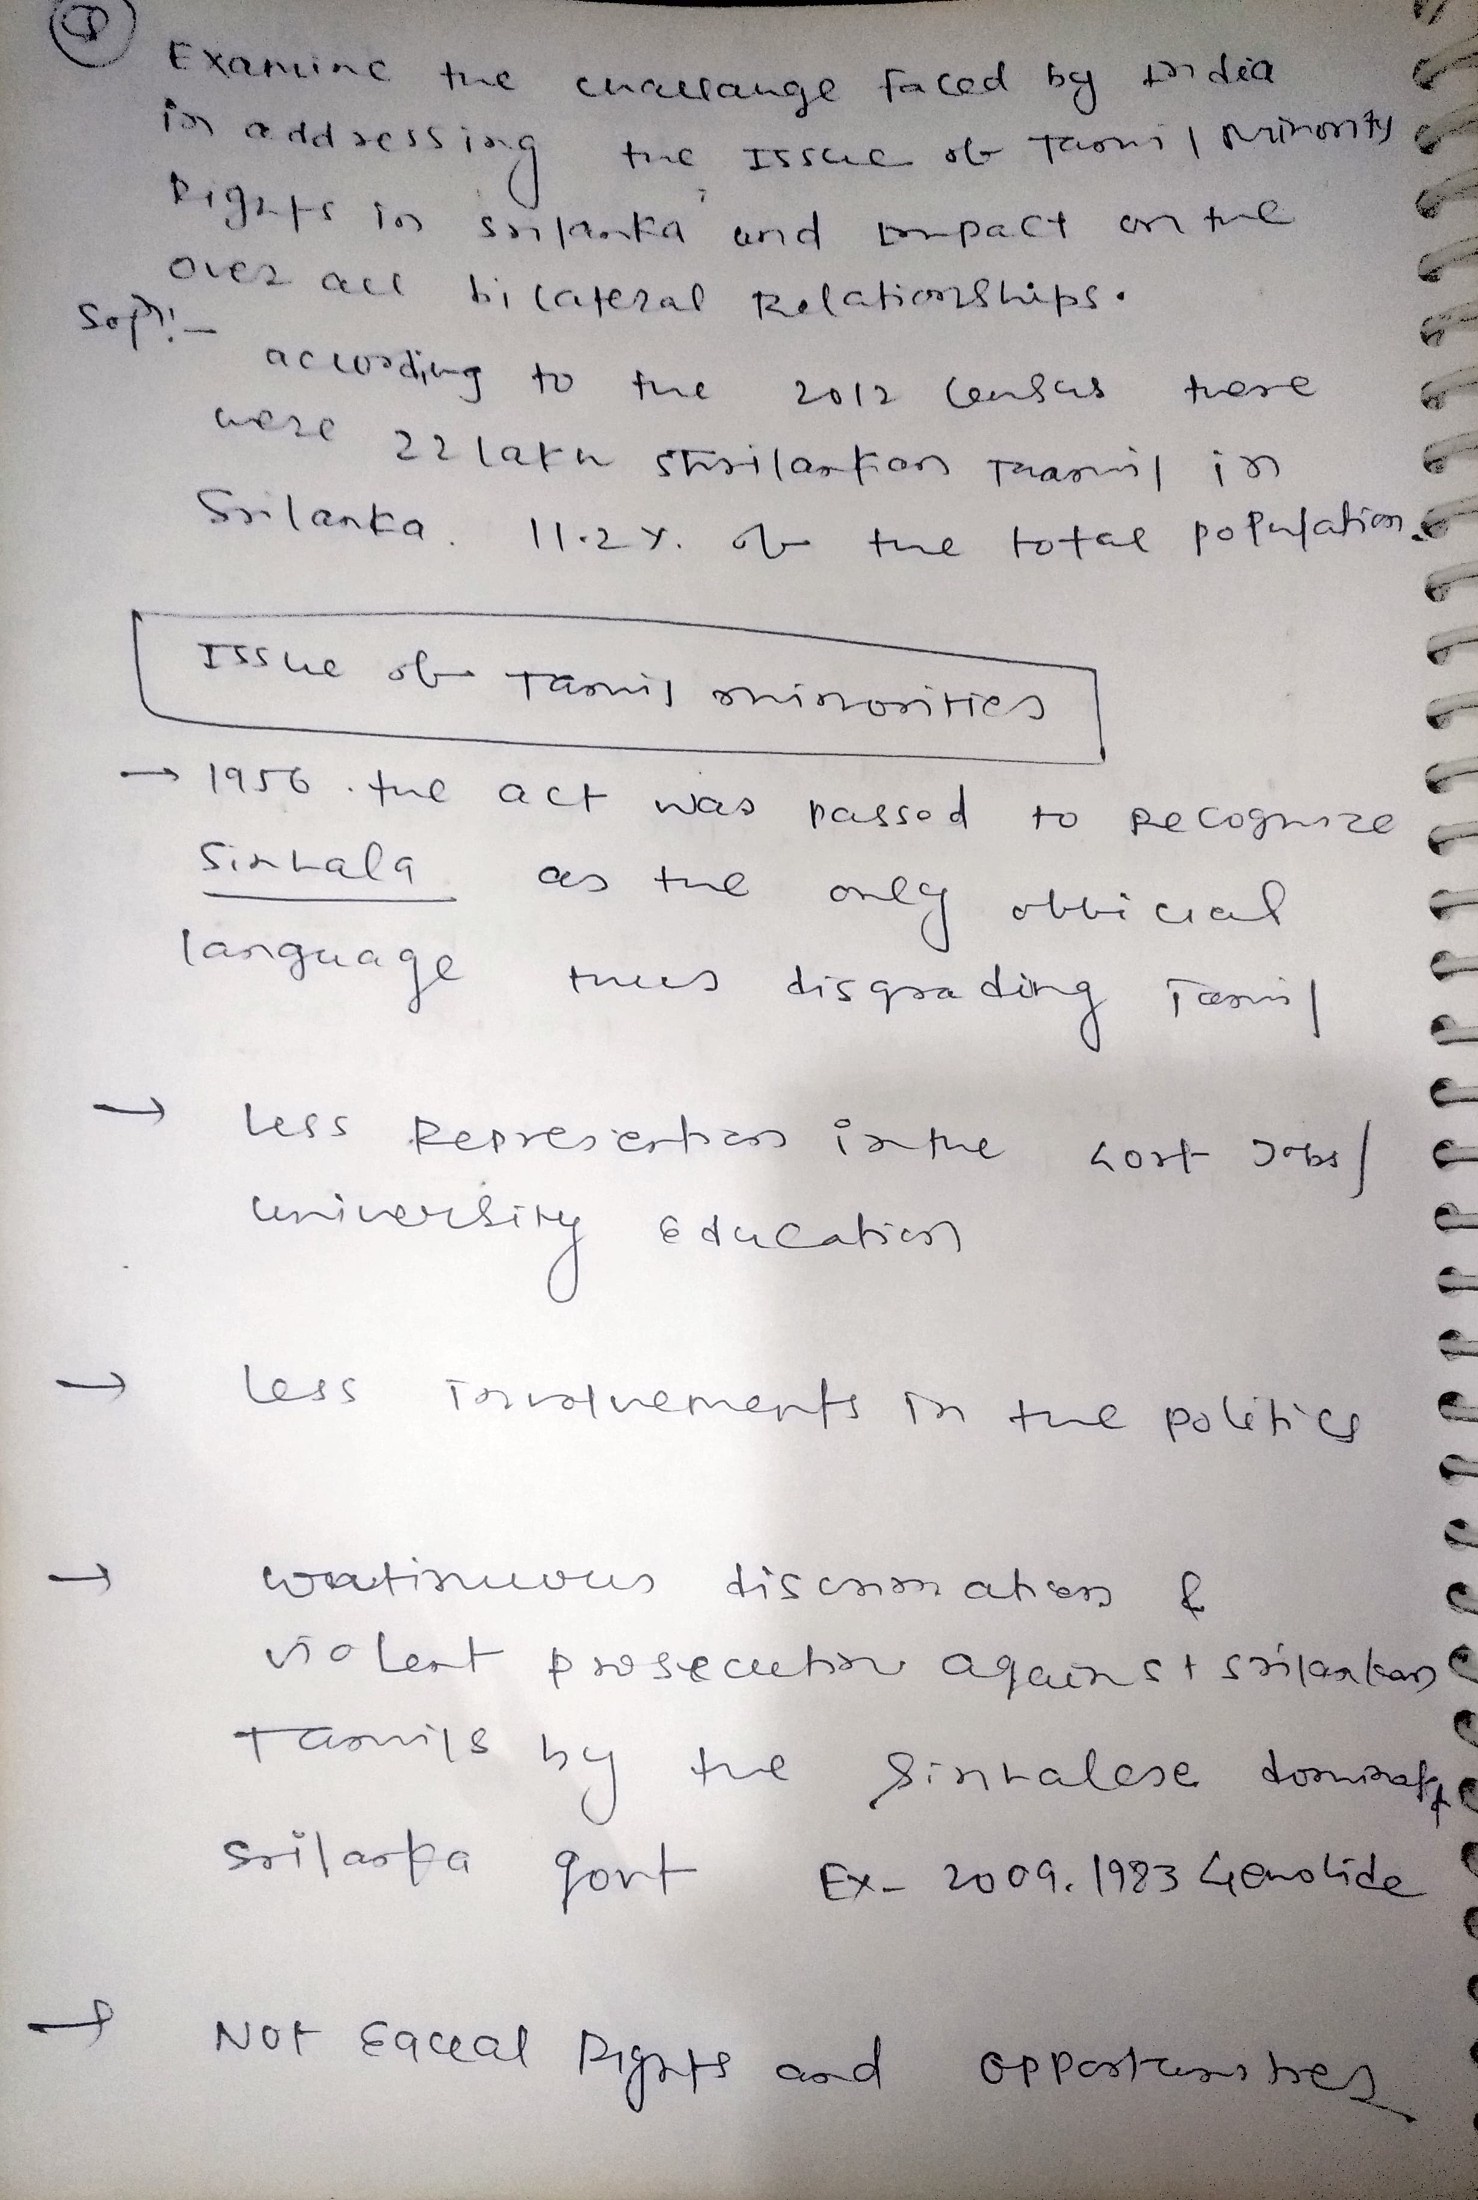 Q
Examine the challange faced by India
in addressing the Issue of Tamil Minority
Rights in srilanka and Impact on the
over all bilateral Relationships.
Sol):-
according to the 2012 Census there
were 22 lakh Shrilankan Tamil in
Srilanka. 11.2%. of the total population.
Issue of Tamil minorities
→ 1956. the act was passed to Recognize
Sinhala as the only official
language thus disgrading Tamil
→ less Representation in the Govt Jobs/
university education
→ less Involvements in the politics
→ continuous discrimnation &
violent prosecution against srilankan
Tamils by the Sinhalese dominate
Srilanka govt Ex- 2009. 1983 Genocide
→ Not Equal Rights and opportunities